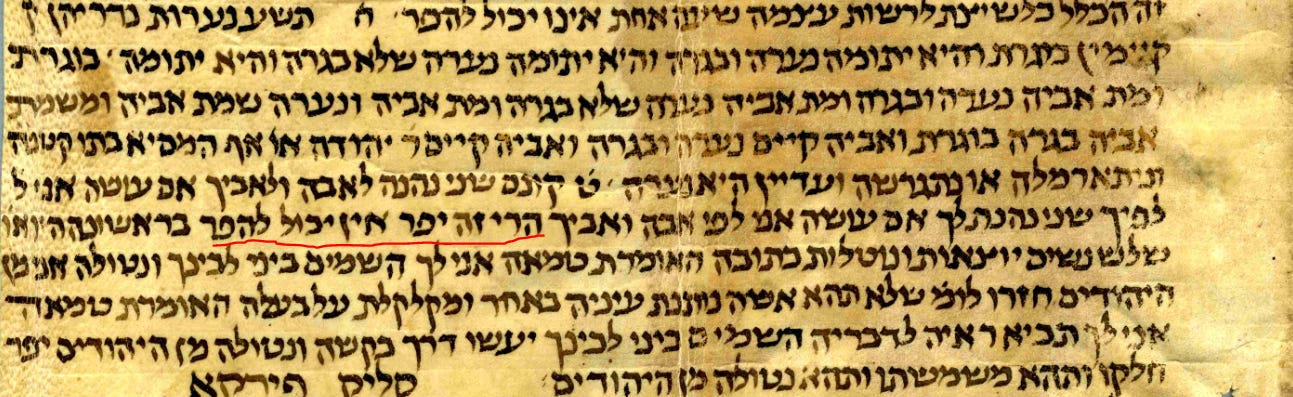 זה הכלל כל שיצת לרשות עצמה שעה אחת אינו יכול להפר ה תשע נערות נדריהן
קיימין בוגרת והיא יתומה נערה ובגרה והיא יתומה נערה שלא בגרה והיא יתומה בוגרת
ומת אביה נערה ובגרה ומת אביה נערה שלא בגרה ומת אביה ונערה שמת אביה ומשמת
אביה בגרה בוגרת ואביה קיים נערה ובגרה ואביה קיים ר יהודה או אף המסיא בתו קטנה
ונתארמלה או נתגרשה ועדיין היא נערה ט קונם שני נהנה לאבה ולאביך אם עושה אני ל
לפיך שני נהנת לך אם עושה אם לפי אבה ואביך הרי זה יפר אין יכול להפר בראשונה היו או
שלש נשים יוצאות ונוטלות כתובה האומרת טמאה אני לך השמים ביני לבינך ונטולה אני מן
היהודים חזרו לומ שלא תהא אשה נותנת עיניה באחר ומקלקלת על בעלה האומרת טמאה
אני לך תביא ראיה לדבריה השמים ביני לבינך יעשו דרך בקשה ונטולה מן היהודים יפר
חלקו ותהא משמשתו ותהא נטולה מן היהודים סליק פירקא